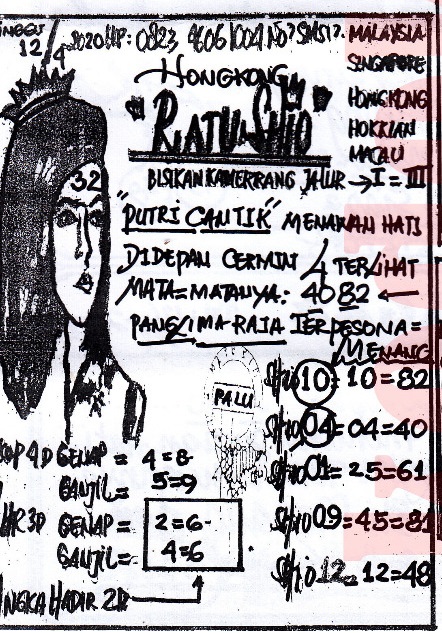 12/4 2020 HP: 0823
MALAYSIA
SINGAPORE
HONGKONG
HOKKIAN
MACAU
HONGKONG
"RATU SHIO"
BISIKAN KAMERRANG JALUR → I = III
32
"PUTRI CANTIK" MENAWAN HATI
DIDEPAN CERMIN TERLIHAT
MATA=MATANYA: 4082 ←
PANGLIMA RAJA TERPESONA =
MENANG
PALU
Shio 10 = 10 = 82
Shio 04 = 04 = 40
Shio 01 = 25 = 61
Shio 09 = 45 = 81
Shio 12 = 12 = 48
4D GENAP = 4=8
GANJIL = 5=9
3D GENAP = 2=6
GANJIL = 4=6
NGKA HADIR 2D